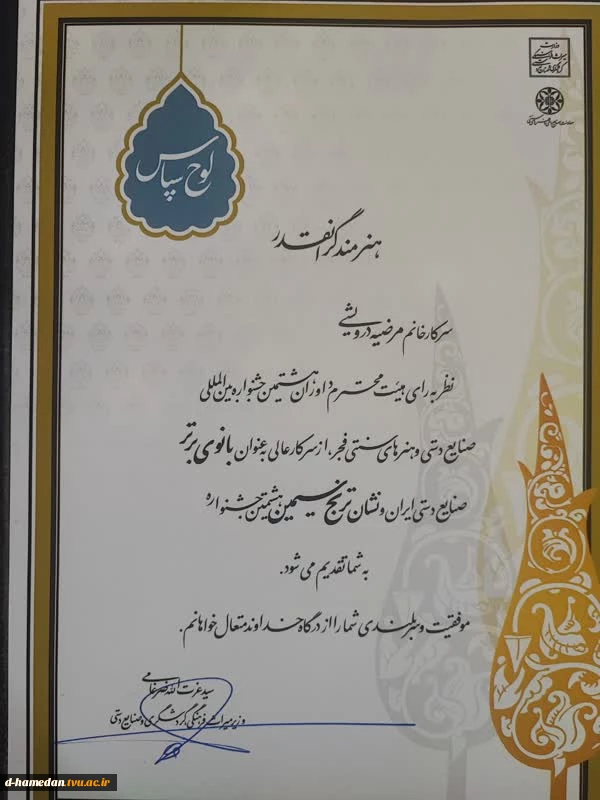 وزارت
لوح سپاس
هنرمند گرانقدر
سرکار خانم مرضیه درویشی
نظر به رای هیئت محترم داوران هشتمین جشنواره بین المللی
صنایع دستی و هنرهای سنتی فجر، از سرکار عالی به عنوان بانوی برتر
صنایع دستی ایران و نشان ترنج سیمین هشتمین جشنواره
به شما تقدیم می شود.
موفقیت و سربلندی شما را از درگاه خداوند متعال خواهانم.
سید عزت الله ضرغامی
وزیر میراث فرهنگی، گردشگری و صنایع دستی
d-hamedan.tvu.ac.ir